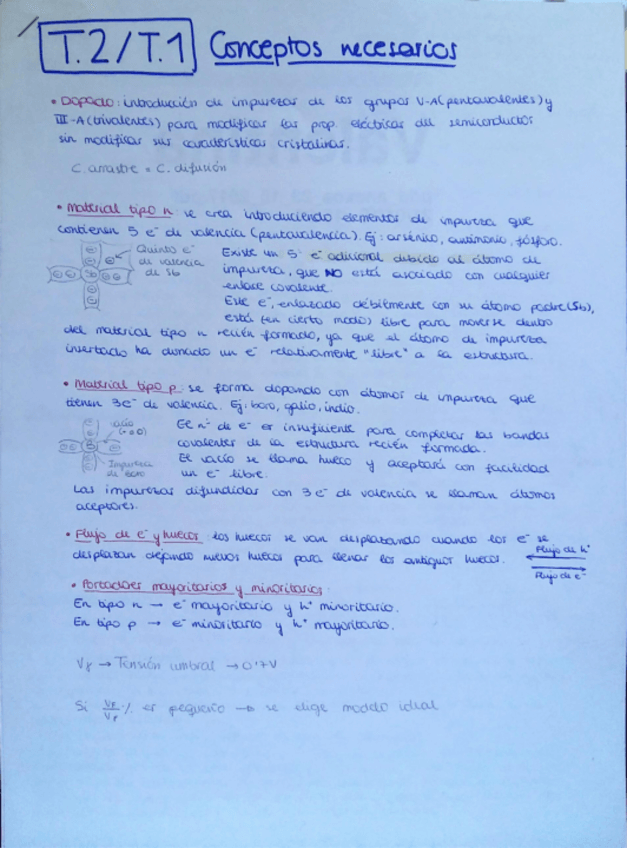 T.2/T.1 Conceptos necesarios
• Dopado: introducción de impurezas de los grupos V-A (pentavalentes) y
III-A (trivalentes) para modificar las prop. eléctricas del semiconductor
sin modificar sus características cristalinas.
C. arrastre = C. difusión
• Material tipo n: se crea introduciendo elementos de impureza que
contienen 5 e⁻ de valencia (pentavalencia). Ej: arsénico, antimonio, fósforo.
Quinto e⁻
de valencia
de Sb
Sb
Existe un 5º e⁻ adicional debido al átomo de
impureza, que NO está asociado con cualquier
enlace covalente.
Este e⁻, enlazado débilmente con su átomo padre (Sb),
está (en cierto modo) libre para moverse dentro
del material tipo n recién formado, ya que el átomo de impureza
insertado ha donado un e⁻ relativamente "libre" a la estructura.
• Material tipo p: se forma dopando con átomos de impureza que
tienen 3e⁻ de valencia. Ej: boro, galio, indio.
vacío
(+ o 0)
B
Impureza
de boro
El nº de e⁻ es insuficiente para completar las bandas
covalentes de la estructura recién formada.
El vacío se llama hueco y aceptará con facilidad
un e⁻ libre.
Las impurezas difundidas con 3 e⁻ de valencia se llaman átomos
aceptores.
• Flujo de e⁻ y huecos: los huecos se van desplazando cuando los e⁻ se
desplazan dejando nuevos huecos para llenar los antiguos huecos.
Flujo de h⁺
Flujo de e⁻
• Portadores mayoritarios y minoritarios:
En tipo n → e⁻ mayoritario y h⁺ minoritario.
En tipo p → e⁻ minoritario y h⁺ mayoritario.
Vγ → Tensión umbral → 0'7V
Si % es pequeño → se elige modelo ideal